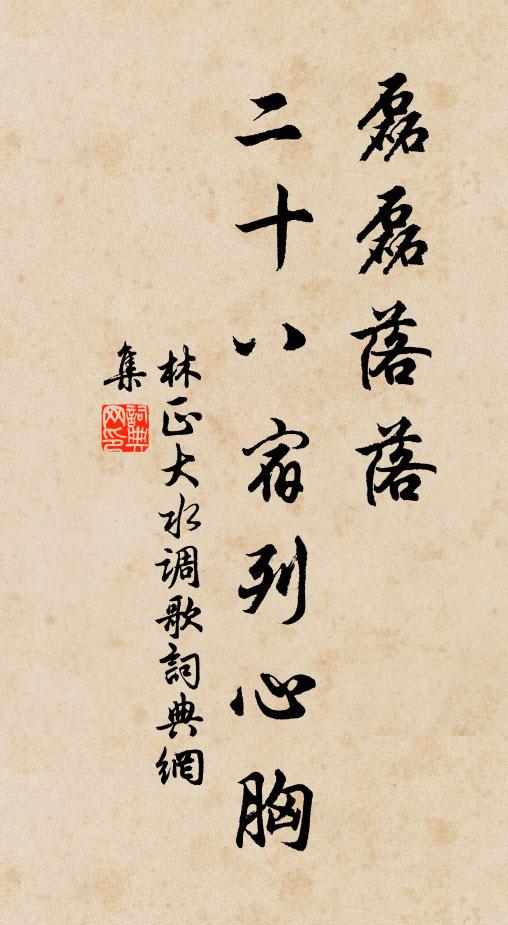 磊磊落落
二十八宿列心胸
林正大水调歌詞典網
集
詞典网印